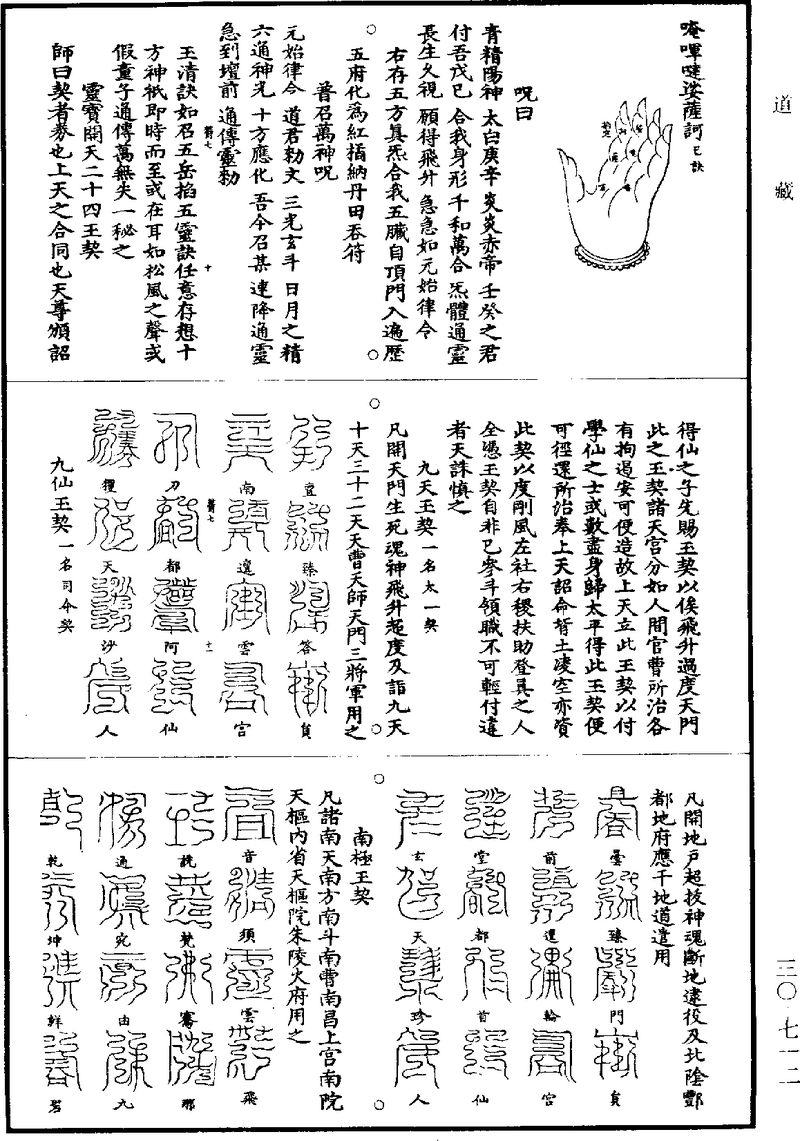 道藏
唵㖵噠娑薩訶巳訣
呪曰
青精陽神 太白庚辛 炎炎赤帝 壬癸之君
付吾戊己 合我身形 千和萬合 炁體通靈
長生久視 願得飛升 急急如元始律令
右存五方真炁合我五臟自頂門入遍歷
五府化為紅指納丹田吞符
普召萬神呪
元始律令 道君勅文 三光玄斗 日月之精
六通神光 十方應化 吾今召某 速降通靈
急到壇前 通傳靈勅
玉清訣如召五岳掐五靈訣任意存想十
方神祇即時而至或在耳如松風之聲或
假童子通傳萬無失一秘之
靈寶開天二十四玉契
師曰契者券也上天之合同也天尊頒詔
得仙之子先賜玉契以俟飛升過度天門
此之玉契諸天官分如人間官曹所治各
有拘遏安可便造故上天立此玉契以付
學仙之士或數盡身歸太平得此玉契便
可徑還所治奉上天詔命皆土凌空亦資
此契以度剛風左社右稷扶助登真之人
全憑玉契自非已參斗領職不可輕付違
者天誅慎之
九天玉契一名太一契
凡開天門生死魂神飛升超度及詣九天
十天三十二天天曹天師天門三將軍用之
宜 臻 答 負
南 邊 雲 宮
刀 都 阿 仙
玃 天 沙 人
九仙玉契一名司命契
凡開地戶超拔神魂斷地逮役及北陰酆
都地府應干地道遣用
曇 臻 門 負
前 還 輪 宮
堂 都 首 仙
玄 天 珍 人
南極玉契
凡諸南天南方南斗南曹南昌上宮南院
天樞內省天樞院朱陵火府用之
音 須 雲 飛
說 梵 騫 那
通 宛 由 九
乾 坤 鮮 君
三〇 七一二